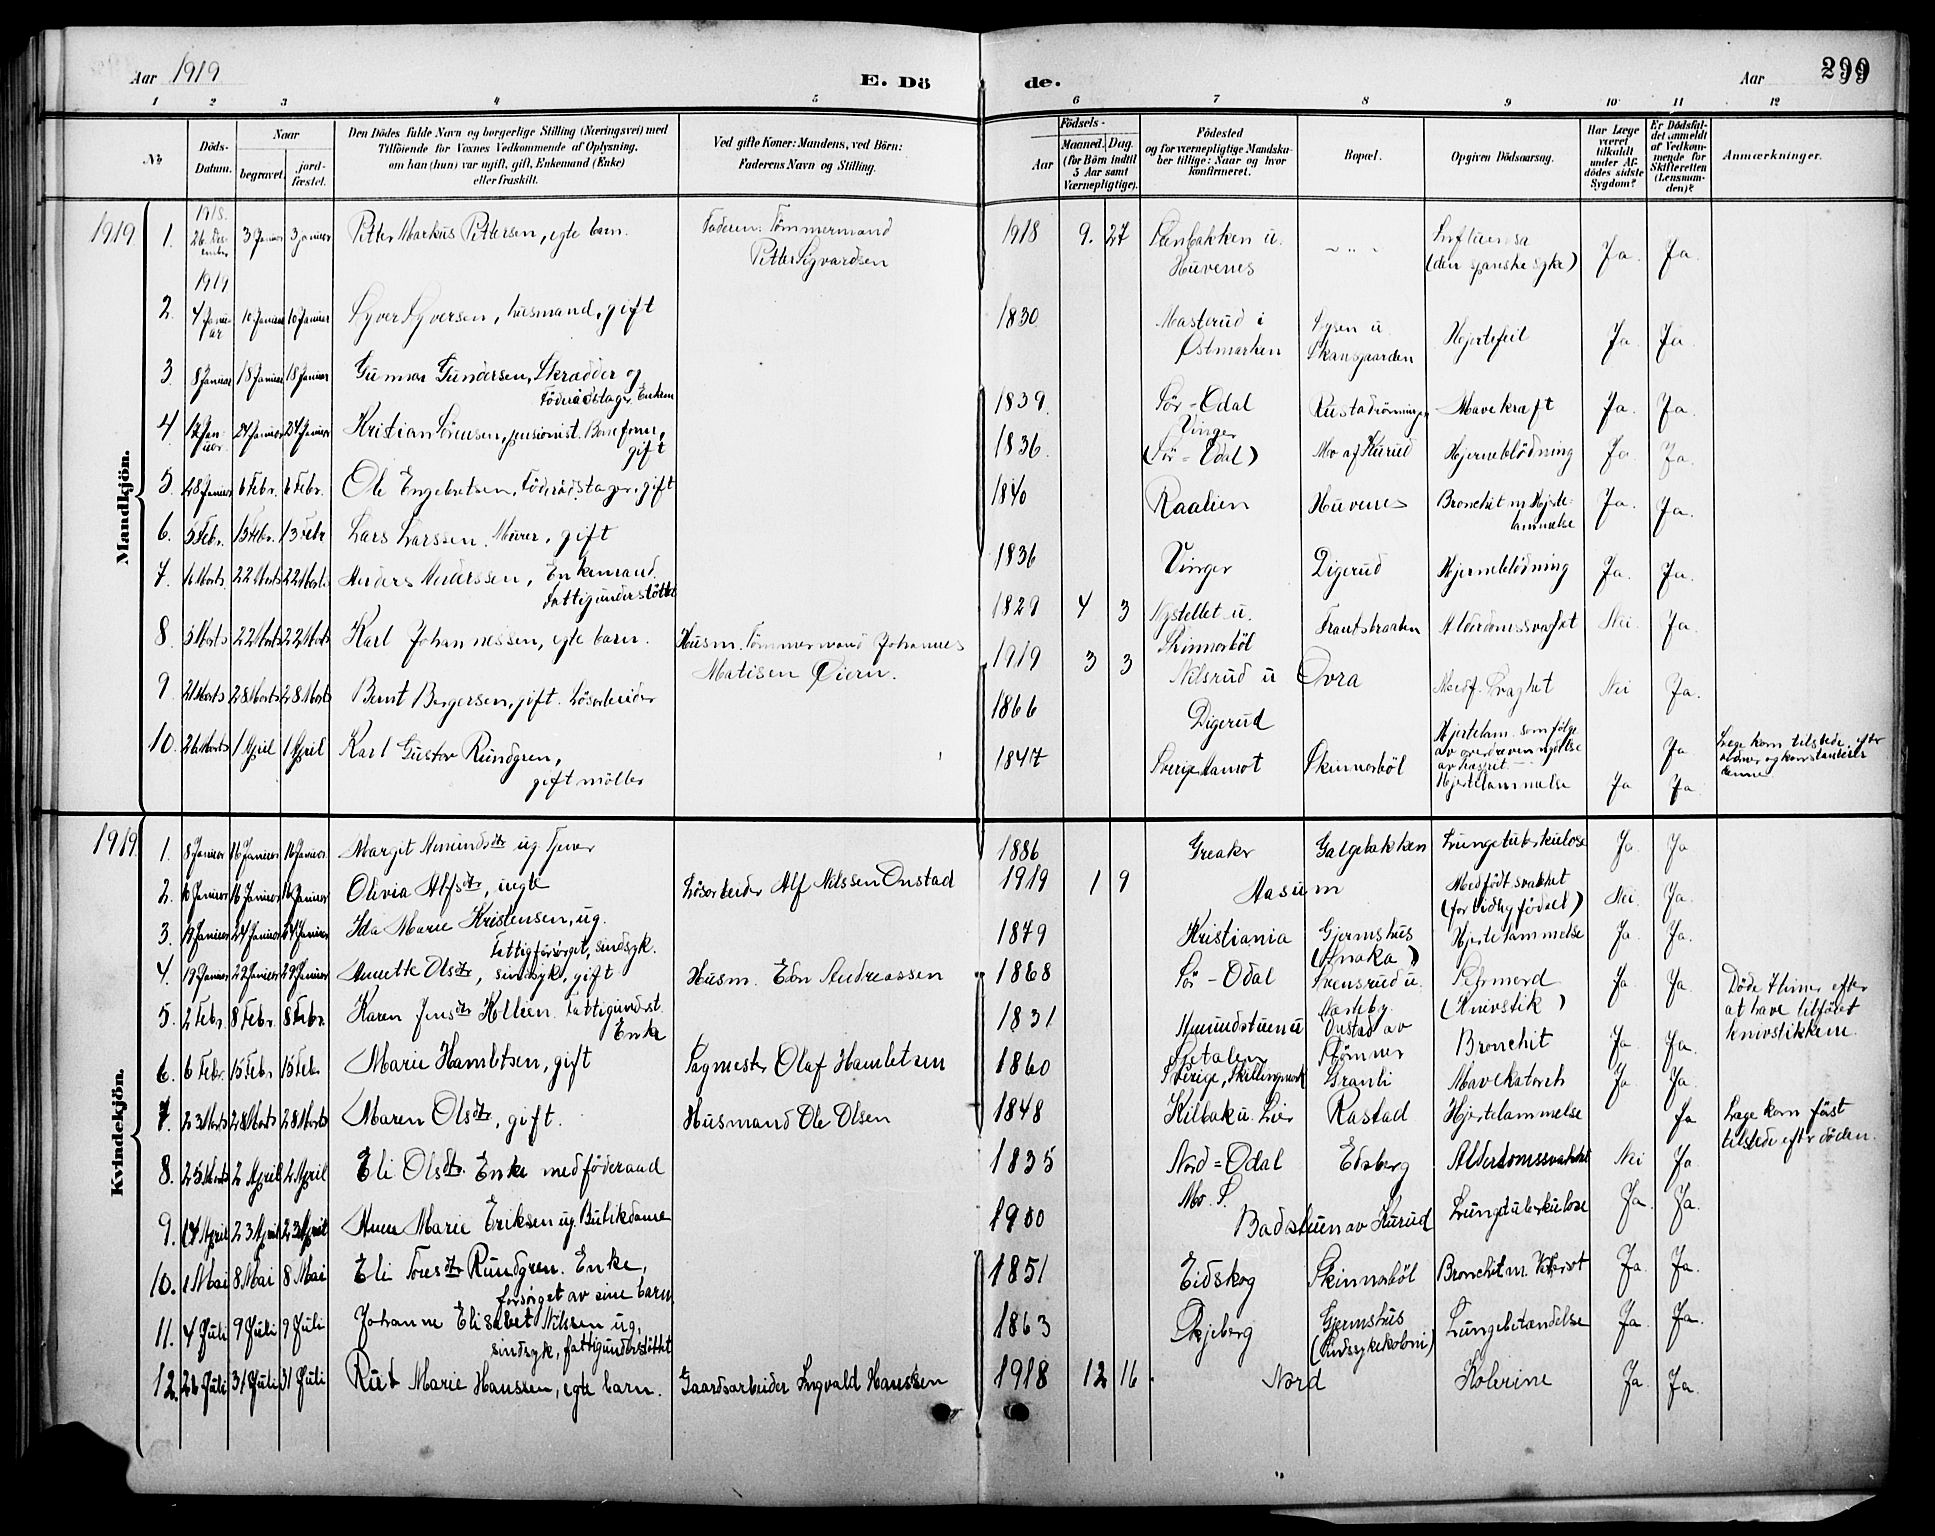 Aar 1919
E. Döde.
Aar 299
1 2 3 4 5 6 7 8 9 10 11 12
№
Döds-Datum.
Naar
begravet.
jordfæstet.
Den Dödes fulde Navn og borgerlige Stilling (Næringsvei) med
Tilföiende for Voxnes Vedkommende af Oplysning,
om han (hun) var ugift, gift, Enkemand (Enke)
eller fraskilt.
Ved gifte Koner: Mandens, ved Börn:
Faderens Navn og Stilling.
Födsels-
Aar
Maaned. Dag.
(for Börn indtil
5 Aar samt
Værnepligtige).
Födested
og for værnepligtige Mandskaber tillige: Naar og hvor
konfirmeret.
Bopæl.
Opgiven Dödsaarsag.
Har Læge været tilkaldt under Afdödes sidste Sygdom?
Er Dödsfaldet anmeldt af Vedkommende for Skifteretten (Lensmanden)?
Anmærkninger.
Mandkjön.
1919 1. 1918. 26 Desember 3 Januar 3 Januar Petter Markus Pettersen, egte barn. Faderen: Tömmermand Petter Syvardsen 1918 9. 27 Stenbakken u. Huvenes - " - Influensa (den spanske syke) Ja. Ja.
1919
2. 4 Januar 10 Januar 10 Januar Syver Syversen, husmand, gift 1830 Masterud i Östmarken u. Skansgaarden Hjertefeil Ja. Ja.
3. 8 Januar 18 Januar 18 Januar Gunnar Gundersen, Skrædder og Föderådstager Enkem 1839. Sör-Odal Kræft Mavekræft Ja. Ja.
4. Januar 24 Januar 24 Januar Kristian Sörensen, pensionist. gift 1836. Vinger (Sör-Odal) Mo af Kurud Hjerneblödning Ja. Ja.
5. 28 Januar 6 Febr. 6 Febr. Ole Engebretsen, Föderådstager, gift 1840 Raalien Huvenes Bronchit m Hjertelammelse Ja. Ja.
6. 5 Febr. 13 Febr. 13 Febr Lars Larssen. Murer, gift 1836 Vinger Digerud Hjerneblödning Ja. Ja.
7. Marts 22 Marts 22 Marts. Anders Anderssen, Enkemand. Fattigunderstöttet 1829 4 3 Nystellet u. Skinnerböl Alderdomssvakhet Nei. Ja.
8. 5 Marts 22 Marts 22 Marts Karl Johannessen, egte barn. Husm. Tömmermand Johannes Matisen Öiern. 1919 3 3 Nilsrud u Övra Medf. Svaghet Nei Ja.
9. 21 Marts 28 Marts 28 Marts Bernt Bergersen, gift. Lösarbeider 1866 Digerud Hjertelam. som fölge av overdreven nydelse av Ja. Læge kom tilstede efter döden og konstanterte denne
10. 26 Marts 1 April 1 April Karl Gustav Rundgren, gift möller 1847 Sverige Skinnerböl Hjertelammelse Ja Ja.
Kvindekjön.
1919 1. 8 Januar 16 Januar 16 Januar Margit Amundsdtr ug. Tjener 1886 Greaker Galgebakken Lungetuberkulose Ja. Ja
2. 10 Januar 16 Januar 16 Januar Olivia Alfsdtr, uegte Lösarbeider Alf Nilssen Onstad 1919 1 9 Aasum Medfödt svakhet (for tidlig födsel) Nei. Ja.
3. Januar 24 Januar 24 Januar Ida Marie Kristensen, ug. Fattigforsörget, sindsyk. 1879 Kristiania Gjermshus Hjertelammelse Ja. Ja.
4. 19 Januar 29 Januar 29 Januar Anette Olsdtr, sindssyk, gift Husm. Edv Andreassen 1868 Sör-Odal Svensrud u. Selvmord (Knivstik) Ja Ja. Döde 7 timer efter at have tilföiet knivstikkene.
5. 2 Febr. 8 Febr. 8 Febr. Karen Jensdtr Kolleien. Fattigunderst. Enke 1831 Amundstuen u Onstad av Strömner Bronchit Ja. Ja.
6. 6 Febr. 15 Febr 15 Febr Marie Hamletsen, gift Sagmester Olaf Hamletsen 1860 Sverige, Skillingmark Granli Mavekatarh Ja Ja.
7. 23 Marts 28 Marts 28 Marts Maren Olsdtr, gift. Husmand Ole Olsen 1848 Kilbak u. Lier Rastad Hjertelammelse Ja Læge kom först tilstede efter döden.
8. 25 Marts 2 April 2 April Eli Olsdtr. Enke med föderaad 1835 Nord-Odal Edsberg Alderdomssvakhet Nei Ja
9. 14 April 23 April 23 April Anne Marie Eriksen ug. Butikdame 1900 Mo. S. Badstuen av Kurud Lungetuberkulose Ja. Ja.
10. 1 Mai 8 Mai 8 Mai Eli Toresdtr Rundgren. Enke, forsörget av sine barn. 1851 Eidskog Skinnerböl Bronchit m. Ja. Ja.
11. 4 Juli 9 Juli 9 Juli Johanne Elisabet Nilssen ug, sindsyk, fattigunderstöttet 1863 Skjeberg Gjermshus (Sindssykekoloni) Lungebetændelse Ja. Ja.
12. 26 Juli 31 Juli 31 Juli Rut Marie Hanssen, egte barn. Gaardsarbeider Ingvald Hanssen 1918 12 16. Nord Kolerine Ja. Ja.